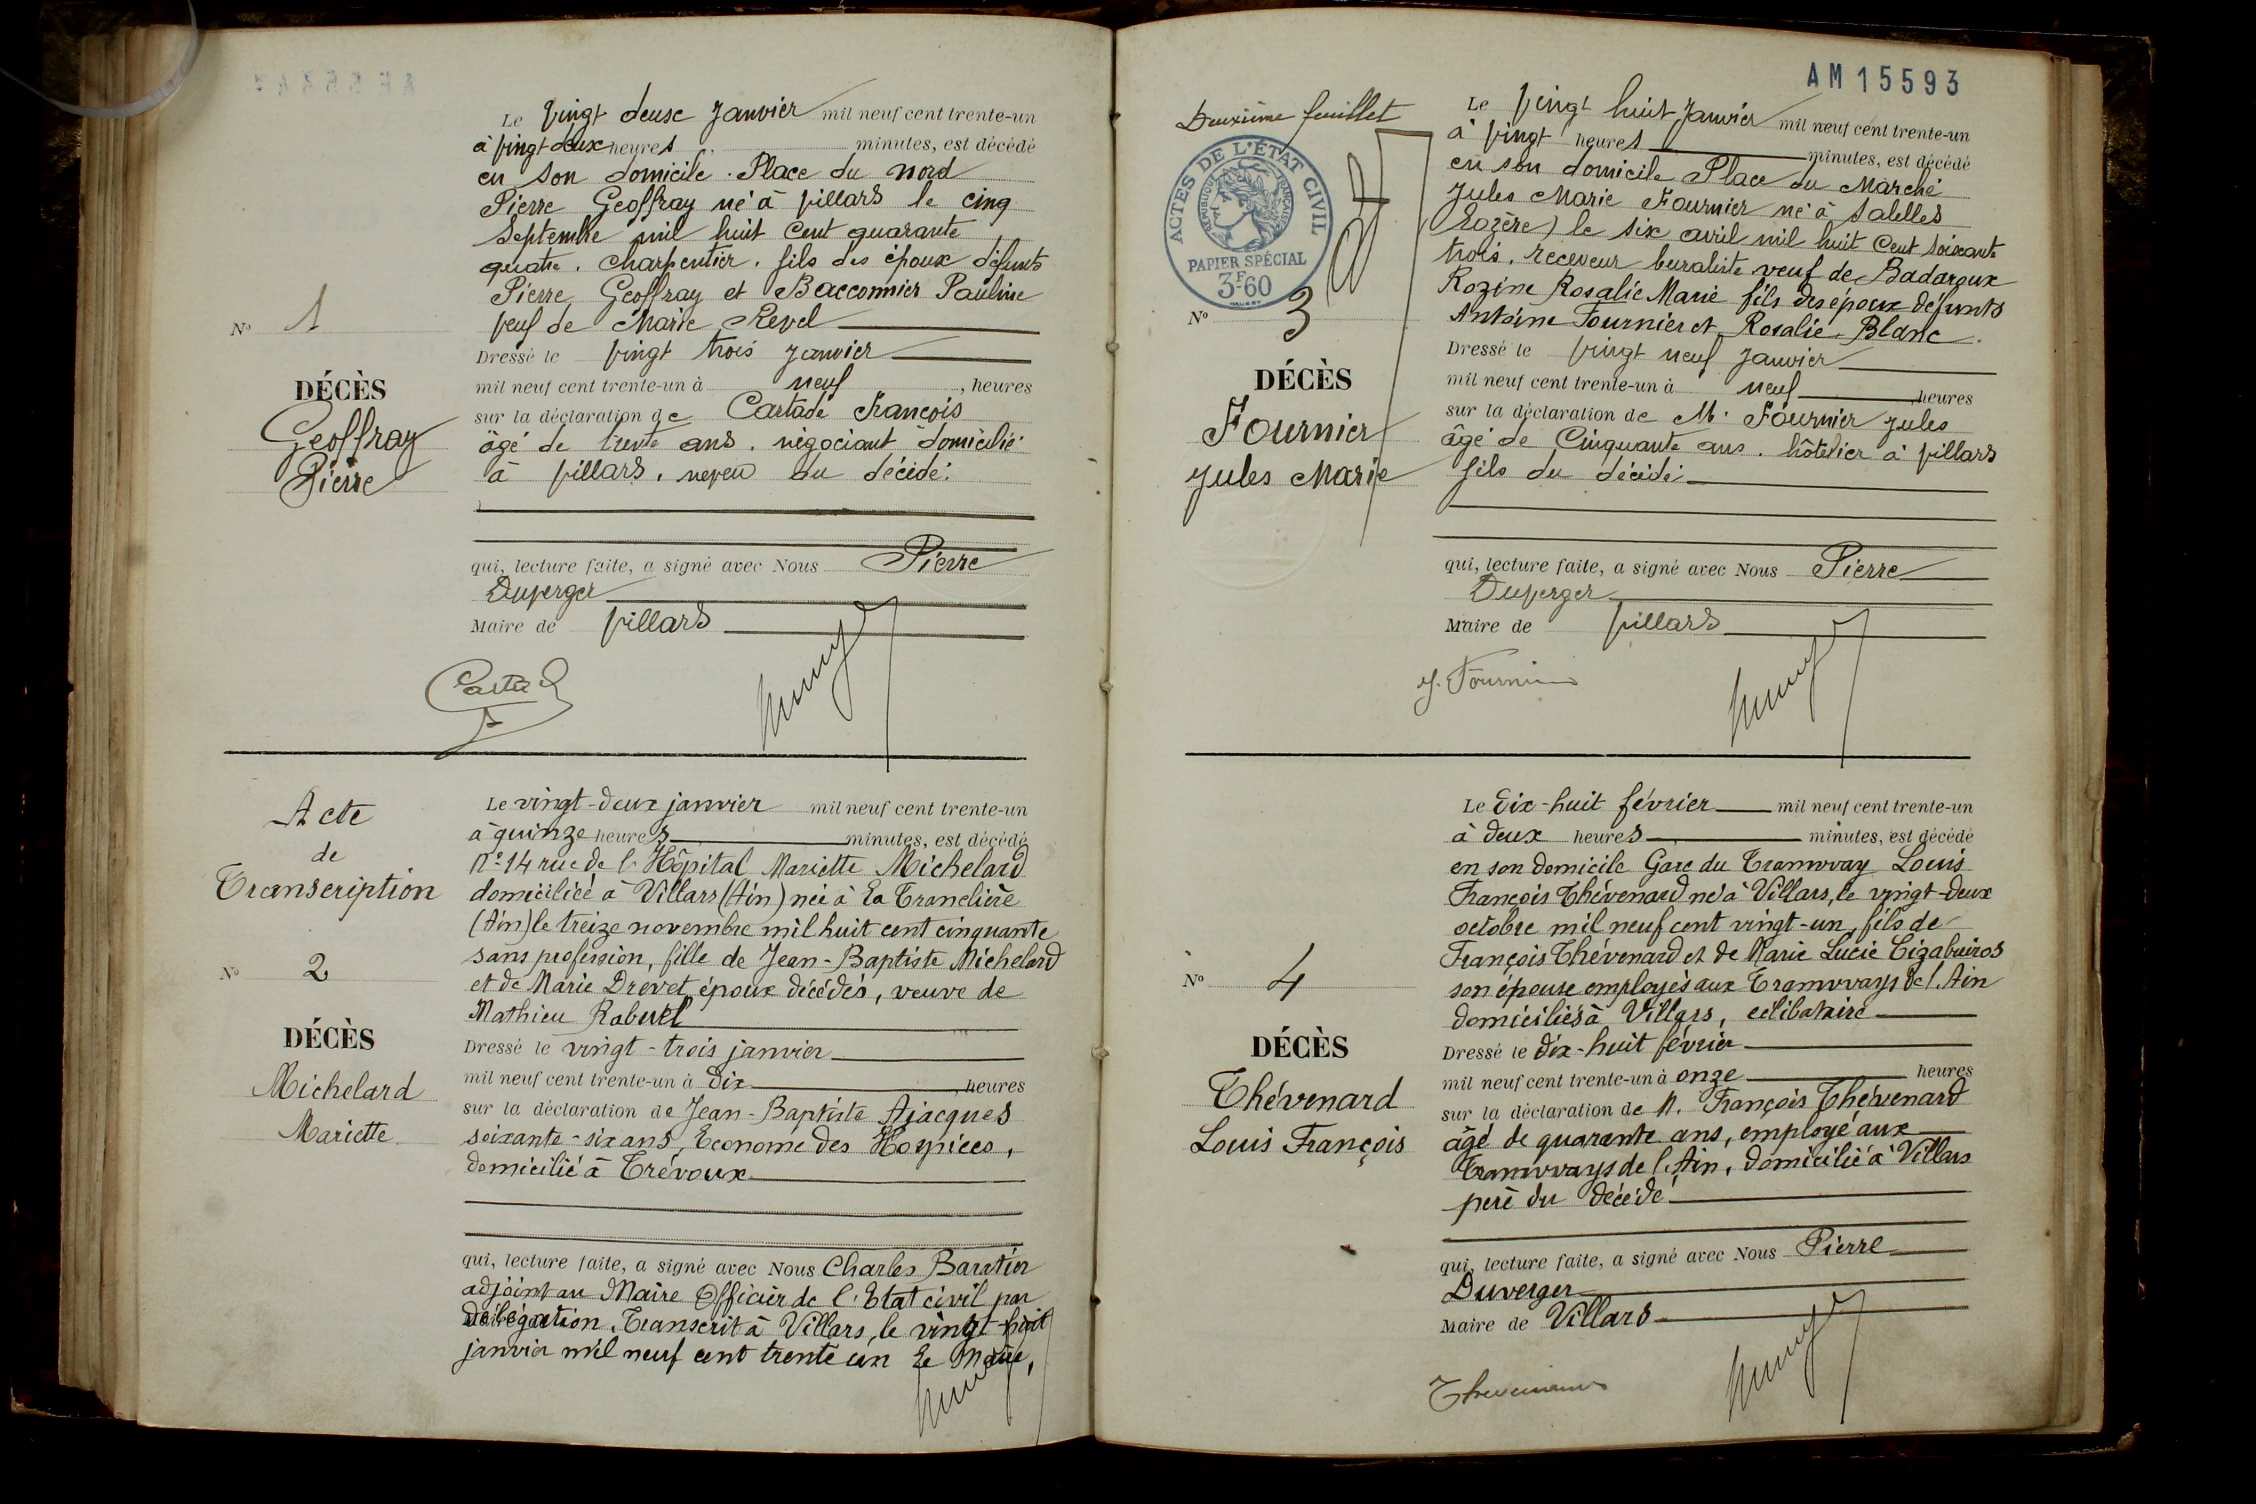 Le vingt deuse Janvier mil neuf cent trente-un
à vingt deux heures minutes, est décédé
en son domicile. Place du Nord
Pierre Geoffray né à Villars le cinq
Septembre mil huit cent quarante
quatre. Charpentier. fils des époux défunts
Pierre Geoffray et Bacconnier Pauline
Veuf de Marie Revel
N° 1
Dressé le Vingt trois Janvier
mil neuf cent trente-un à neuf, heures
DÉCÈS
sur la déclaration de Cartade François
Geoffray
Pierre
âgé de trente ans. négociant domicilié
à Villars, neveu du décédé.
qui, lecture faite, a signé avec Nous Pierre
Duverger
Maire de Villars
Acte
de
Transcription
N° 2
DÉCÈS
Michelard
Mariette
Le vingt-deux janvier mil neuf cent trente-un
à quinze heures minutes, est décédé
n° 14 rue de l'Hôpital Mariette Michelard
domiciliée à Villars (Ain) née à La Tranclière
(Ain) le treize novembre mil huit cent cinquante
sans profession, fille de Jean-Baptiste Michelard
et de Marie Drevet époux décédés, veuve de
Mathieu Rabuel
Dressé le vingt-trois janvier
mil neuf cent trente-un à dix, heures
sur la déclaration de Jean-Baptiste Ajacques
soixante-six ans, Econome des Hospices,
domicilié à Trévoux
qui, lecture faite, a signé avec Nous Charles Baratier
adjoint au Maire Officier de l'Etat civil par
délégation. Transcrit à Villars, le vingt-huit
janvier mil neuf cent trente un Le Maire,
AM 15593
Deuxième feuillet
ACTES DE L'ÉTAT CIVIL
RÉPUBLIQUE FRANÇAISE
PAPIER SPÉCIAL
3F60
N° 3
DÉCÈS
Fournier
Jules Marie
Le Vingt huit Janvier mil neuf cent trente-un
à Vingt heures minutes, est décédé
en son domicile Place du Marché
Jules Marie Fournier né à Salelles
(Lozère) le six avril mil huit cent soixante
trois. receveur buraliste veuf de Badaroux
Rozine Rosalie Marie fils des époux défunts
Antoine Fournier et Rosalie Blanc.
Dressé le Vingt neuf Janvier
mil neuf cent trente-un à neuf heures
sur la déclaration de M. Fournier Jules
âgé de Cinquante ans. hôtelier à Villars
fils du décédé
qui, lecture faite, a signé avec Nous Pierre
Duverger
Maire de Villars
J. Fournier
N° 4
DÉCÈS
Thévenard
Louis François
Le Dix-huit février mil neuf cent trente-un
à deux heures minutes, est décédé
en son domicile Gare du Tramway Louis
François Thévenard né à Villars, le vingt-deux
octobre mil neuf cent vingt-un, fils de
François Thévenard et de Marie Lucie Cizabuiros
son épouse employés aux Tramways de l'Ain
domiciliés à Villars, célibataire
Dressé le dix-huit février
mil neuf cent trente-un à onze heures
sur la déclaration de M. François Thévenard
âgé de quarante ans, employé aux
Tramways de l'Ain, domicilié à Villars
père du décédé
qui, lecture faite, a signé avec Nous Pierre
Duverger
Maire de Villars